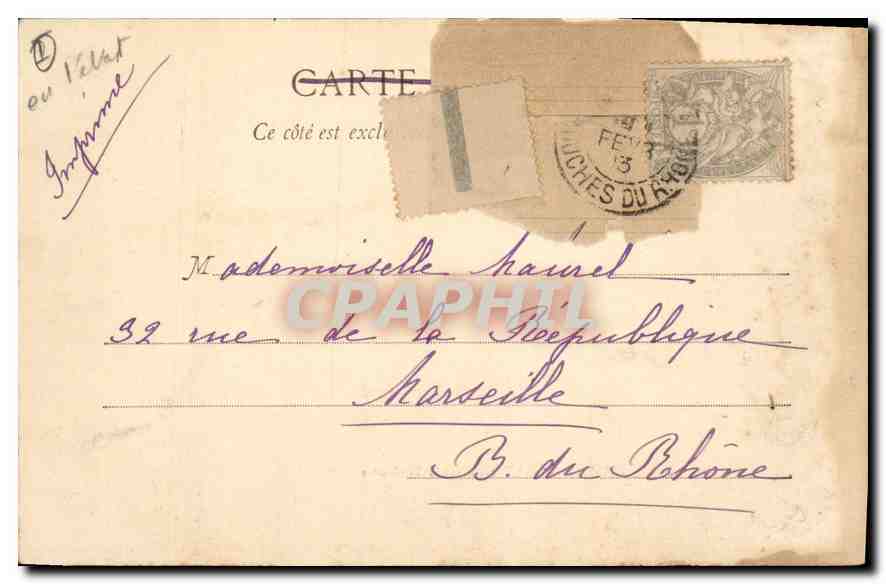 1
en l'état
Imprimé
CARTE
Ce côté est excl
FEVR
3
BOUCHES DU RHONE
Mademoiselle Maurel
CPAPHIL
32 rue de la République
Marseille
B. du Rhône